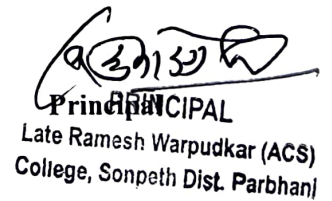 Principal
PRINCIPAL
Late Ramesh Warpudkar (ACS)
College, Sonpeth Dist. Parbhani